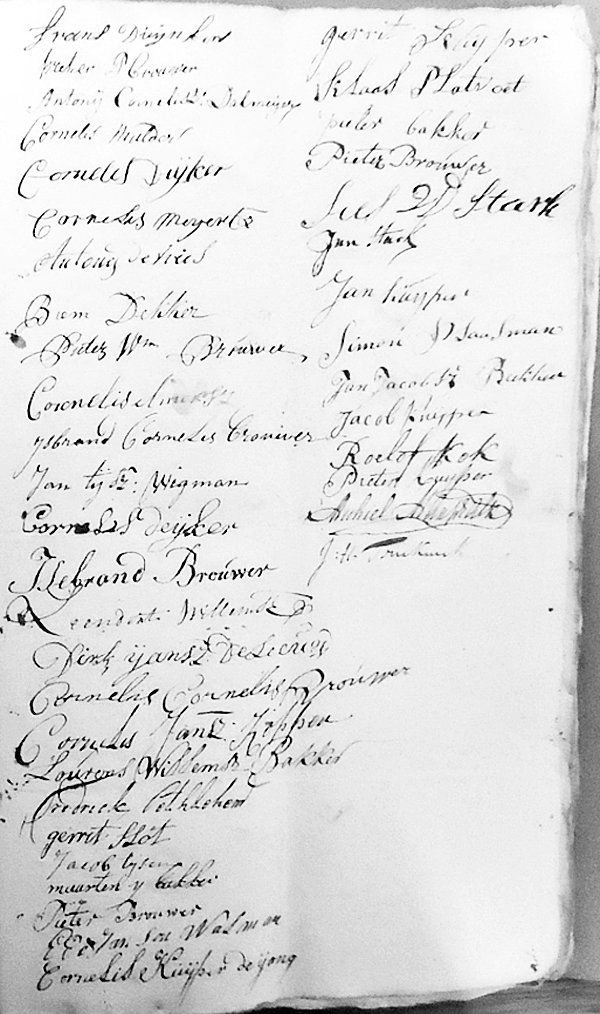 frans Duijnker
Brouwer
Antonij Cornelisz: Dalmeijer
Cornelis Mulder
Cornelis Duijker
Cornelis Meyertz
Antony de vries
Brem Dekker
Pieter Wm Brouwer
Cornelis
ysbrand Cornelis Brouwer
Jan tijsz: Wigman
Cornelis deijker
IJsbrand Brouwer
Leendert Willemsz
Dirk yansz De Leeuw
Cornelis Cornelis Brouwer
Cornelis Jansz: Hopper
Lourens Willemsz Bakker
fredrick Bethlehem
gerrit Slot
Jacob tysen
maarten y bakker
Pieter Brouwer
Jan Walman
Cornelis Kuijper de yong
gerrit Kuyper
Klaas Plats
pieter bakker
Pieter Brouwer
Stark
Jan Stark
Jan kuyper
Simon Plausman
Jan Jacobsz Bakker
Jacob kuyper
Roelof Kok
Pieter kuyper
J. H.